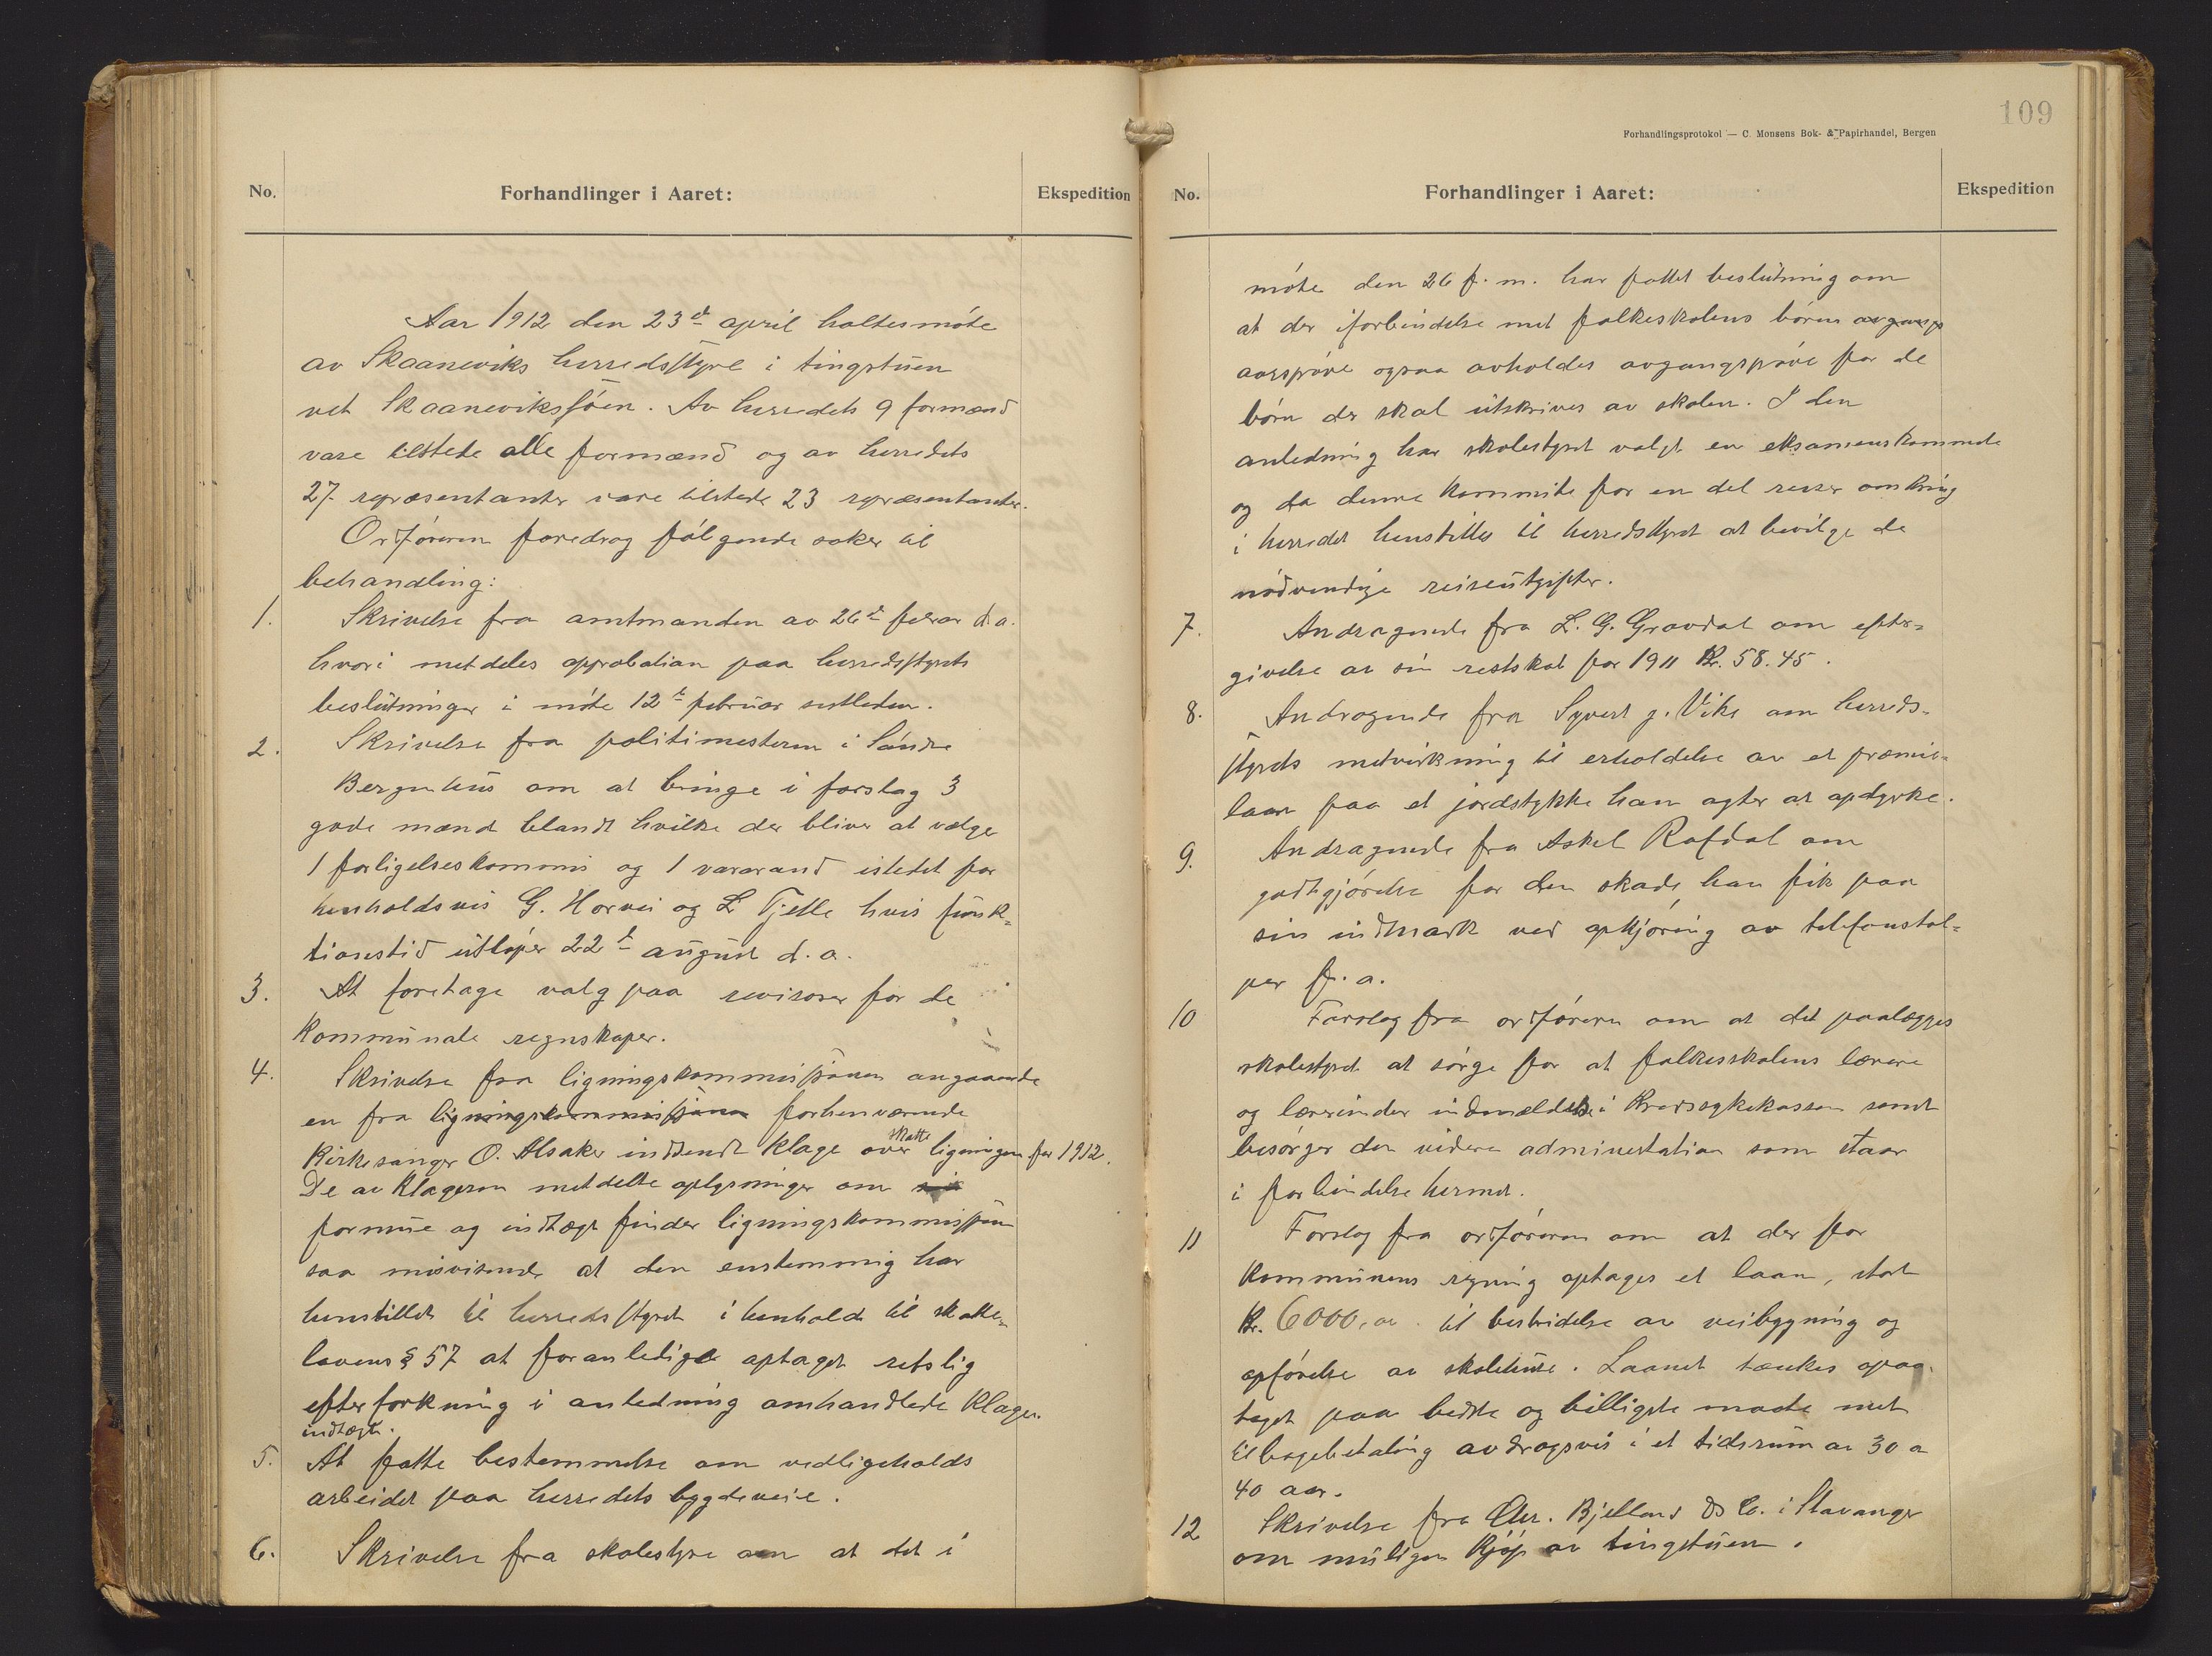 No.
Forhandlinger i Aaret:
Ekspedition
Aar 1912 den 23d april holtes møte
av Skaaneviks herredsstyre i tingstuen
vet Skaaneviksjøen. Av herredets 9 formænd
vare tilstede alle formænd og av herredets
27 repræsentanter vare tilstede 23 repræsentanter.
Ordføreren foredrog følgende saker til
behandling:
1. Skrivelse fra amtmanden av 26d februar d.a.
hvori metdeles approbation paa herredsstyrets
beslutninger i møte 12te februar sistleden.
2. Skrivelse fra politimesteren i Søndre
Bergenhus om at bringe i forslag 3
gode mænd blandt hvilke der bliver at vælge
1 forligelseskommis og 1 vararand istedet for
henholdsvis G. Horvei og L Tjelle hvis funk-
tionstid utløper 22de august d.a.
3. At foretage valg paa revisorer for de
kommunale regnskaper.
4. Skrivelse fra ligningskommissjonen angaaende
en fra ligningskommissjonen forhenværende
Kirkesanger O. Alsaker inddendt klage over skatteligningen for 1912.
De av klageren metdelte oplysninger om sin
formue og indtægt finder ligningskommissjon
saa misvisende at den enstemmig har
henstillet til herredsstyret i henhold til skatte-
lovens § 57 at foranledige optaget retslig
efterforkning i anledning omhandlede klagers
indtægt.
5. At fatte bestemmelse om vedligeholds
arbeidet paa herredets bygdeveie.
6. Skrivelse fra skolestyre om at det i
109
Forhandlingsprotokol — C. Monsens Bok- & Papirhandel, Bergen
No.
Forhandlinger i Aaret:
Ekspedition
møte den 26 f. m. har fattet beslutning om
at der iforbindelse met folkeskolens børns avgangs
aarsprøve ogsaa avholdes avgangsprøve for de
børn der skal utskrives av skolen. I den
anledning har skolestyret valgt en eksamenskommite
og da denne kommite for en del reiser omkring
i herredet henstilles til herredsstyret at bevilge de
nødvendige reiseutgifter.
7. Andragende fra L. G. Gravdal om efter-
givelse av sin restskat for 1911 Kr. 58.45.
8. Andragende fra Syvert J. Vike om herreds-
styrets metvirkning til erholdelse av et præmie-
laan paa et jordstykke han agter at opdyrke.
9. Andragende fra Askel Rafdal om
godtgjørelse for den skade han fik paa
sin indmark ved opkjøring av telefonstol-
per f. a.
10 Forslag fra ordføreren om at det paalægges
skolestyret at sørge for at folkesskolens lærere
og lærerinder indmeldes i Kredssykekassen samt
besørger den videre adminestration som staar
i forbindelse hermet.
11 Forslag fra ordføreren om at der for
kommunens regning optages et laan, stort
Kr. 6000,00 til bestridelse av veibygning og
opførelse av skolehuse. Laanet tænkes opaa-
taget paa bedste og billigste maate met
tilbagebetaling avdragsvis i et tidsrum av 30 a
40 aar.
12 Skrivelse fra Chr. Bjelland & Co. i Stavanger
om muligen kjøp av tingstuen.